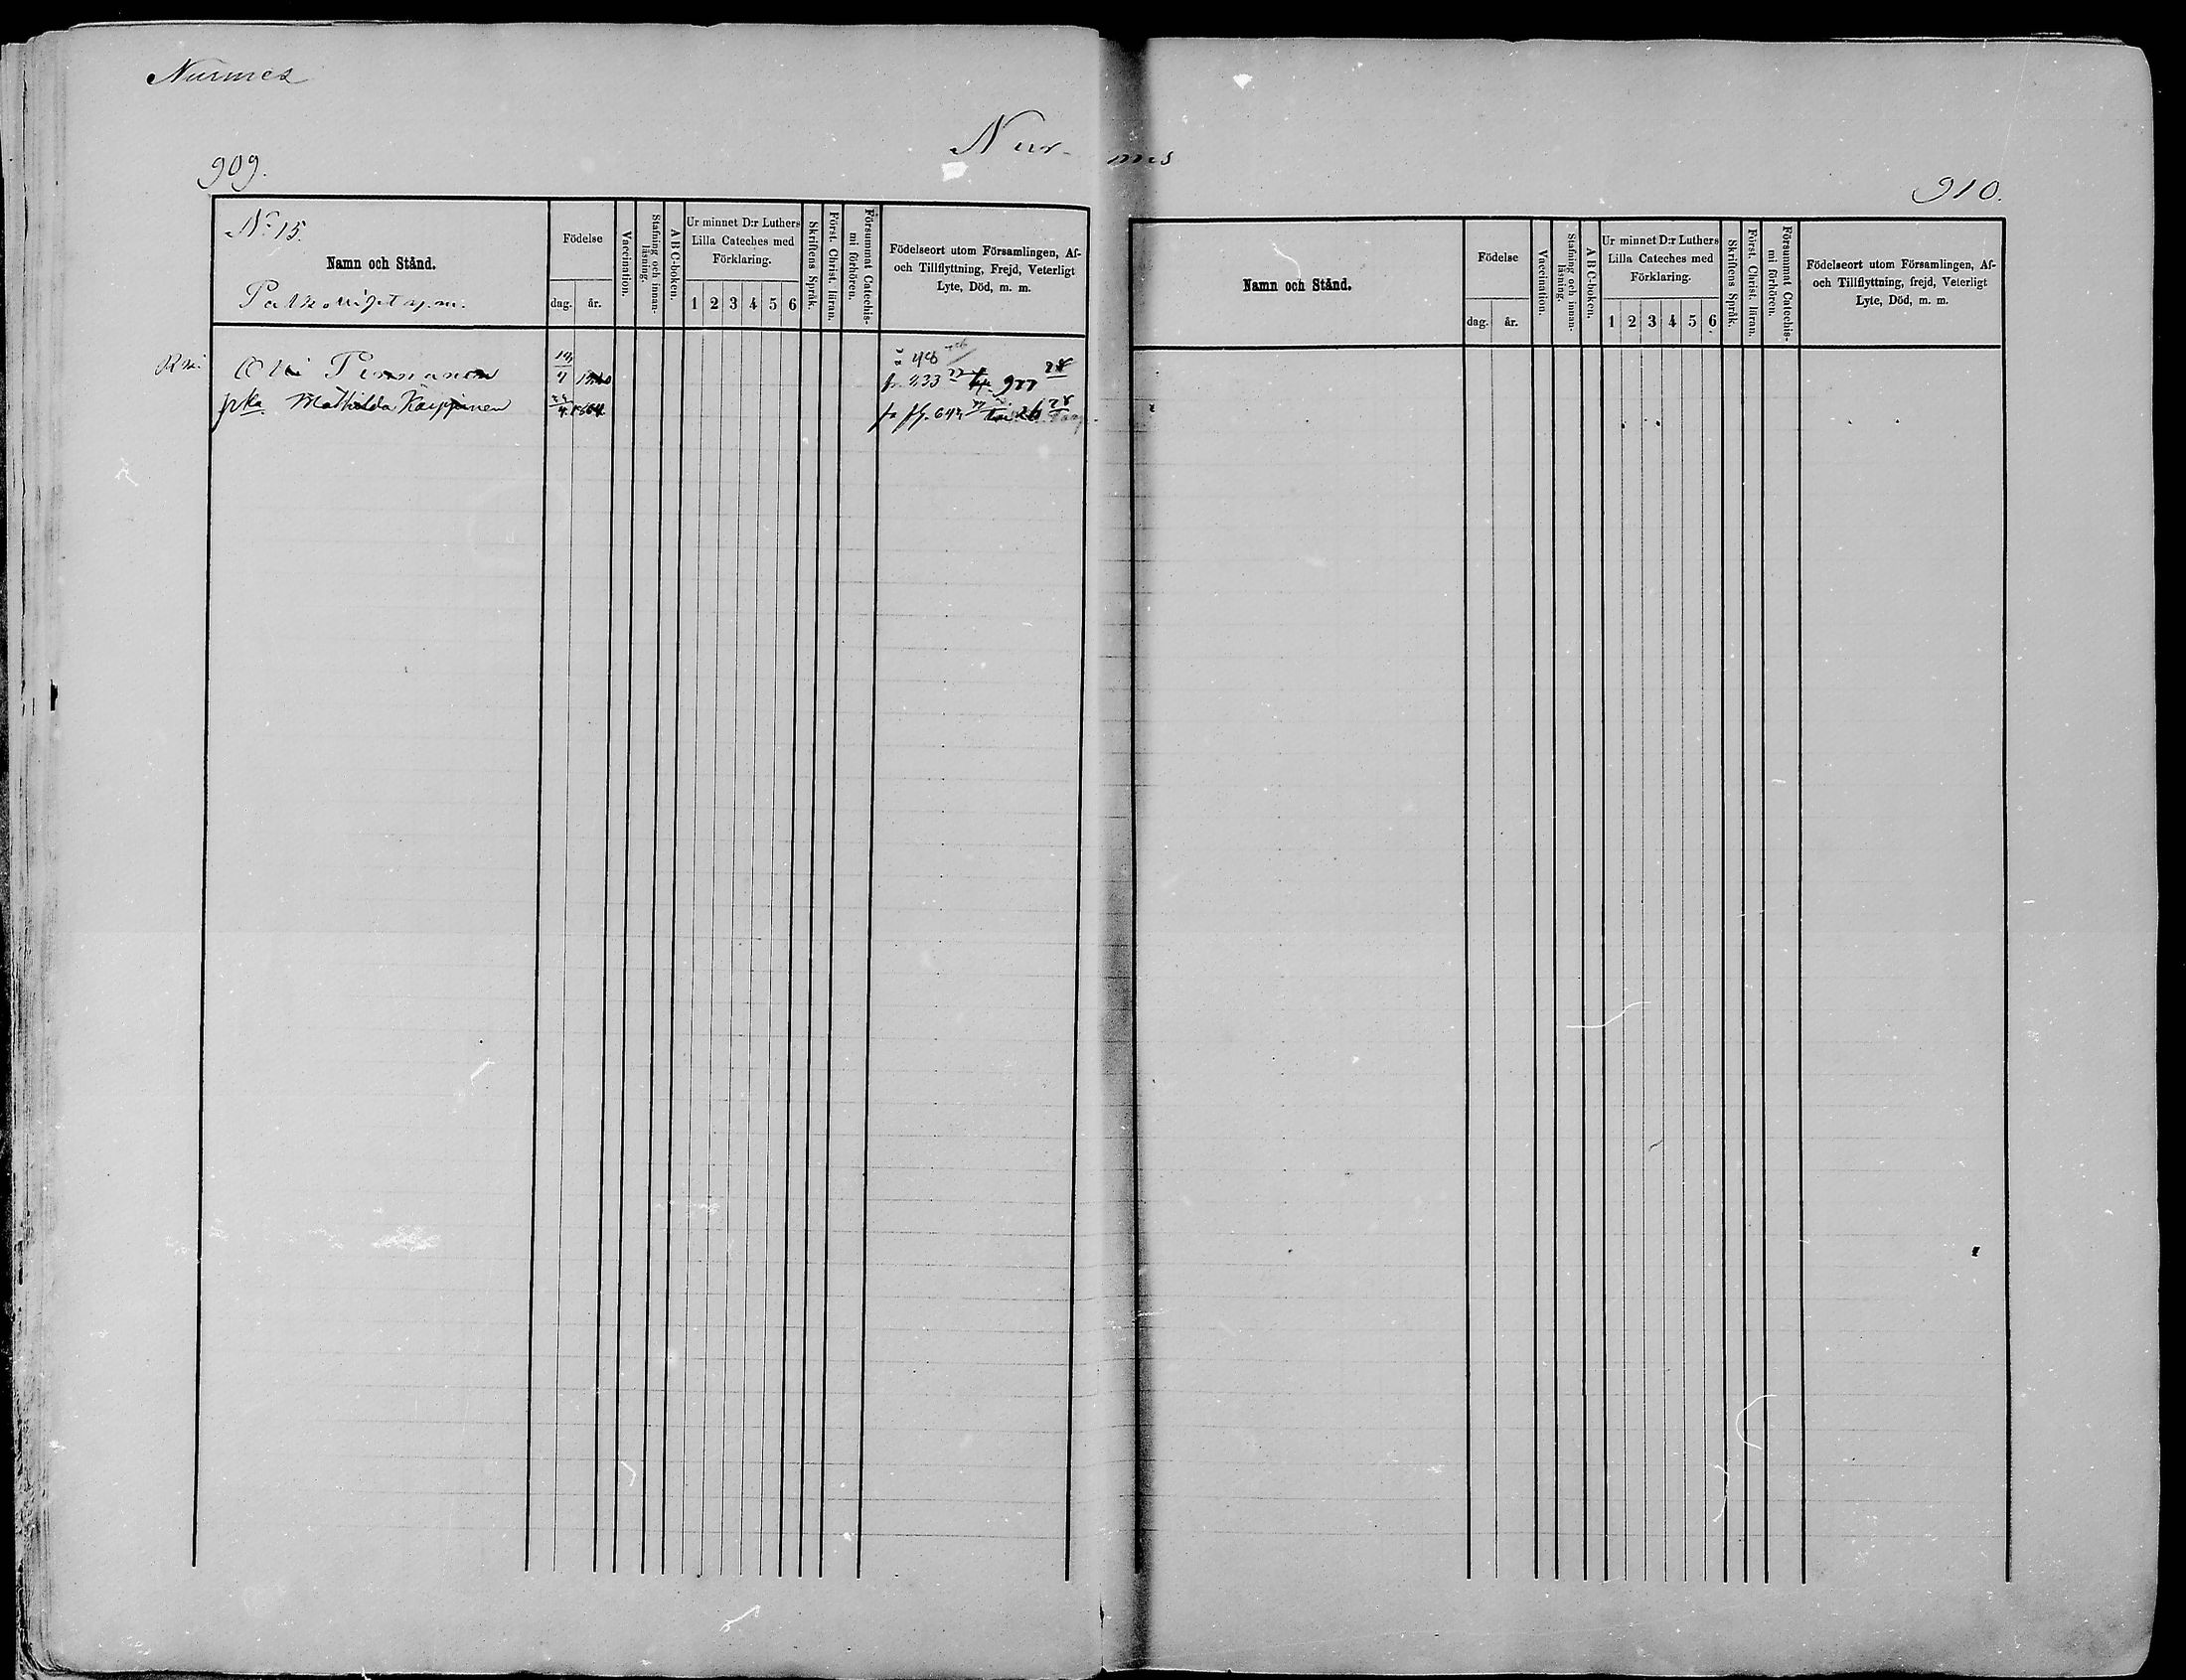 Nurmes
Nur- mes
909.
No 15.
Namn och Stånd.
Födelse
dag. år.
Vaccination.
Stafning och innan-
läsning.
A B C-boken.
Ur minnet D:r Luthers
Lilla Cateches med
Förklaring.
1 2 3 4 5 6
Skriftens Språk.
Först. Christ. läran.
Försummat Catechis-
mi förhören.
Födelseort utom Församlingen, Af-
och Tillflyttning, Frejd, Veterligt
Lyte, Död, m. m.
Olli
Mathilda
fr 933
fr 26 28
910.
Namn och Stånd.
Födelse
dag. år.
Vaccination.
Stafning och innan-
läsning.
A B C-boken.
Ur minnet D:r Luthers
Lilla Cateches med
Förklaring.
1 2 3 4 5 6
Skriftens Språk.
Först. Christ. läran.
Försummat Catechis-
mi förhören.
Födelseort utom Församlingen, Af-
och Tillflyttning, frejd, Veterligt
Lyte, Död, m. m.